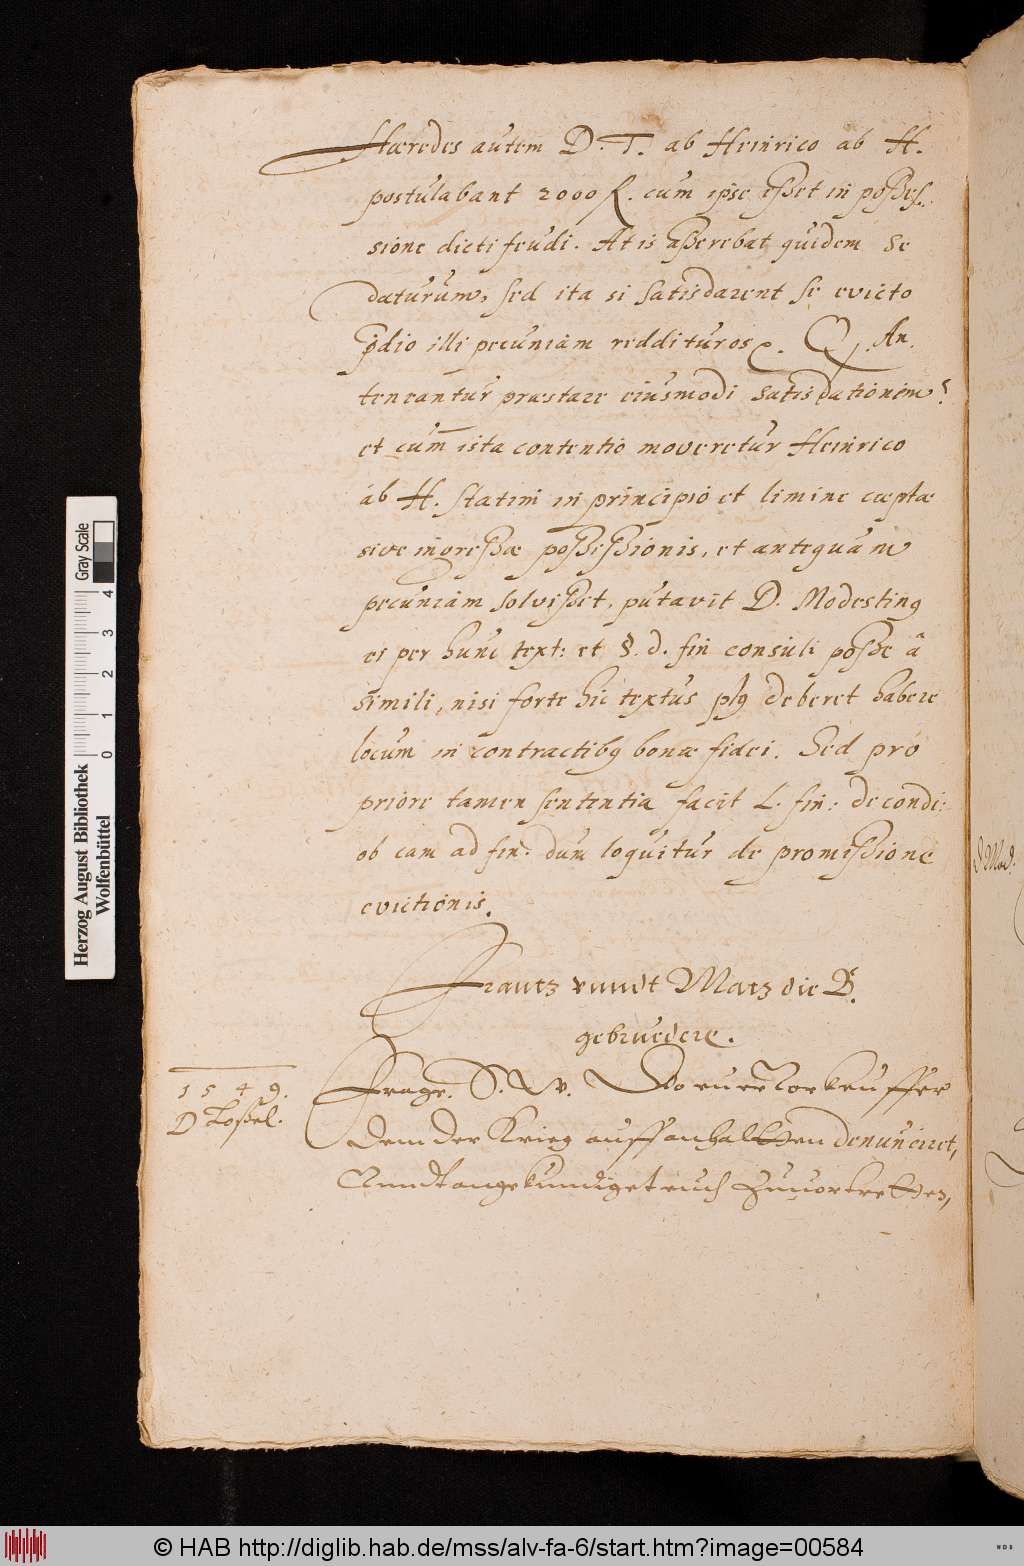 Hæredes autem D. T. ab Heinrico ab H.
postulabant 2000 fl. cum ipse esset in posses-
sione dicti feudi. At is asserebat quidem se
daturum, sed ita si satisdarent se evicto
p̃dio illi pecuniam reddituros. Q. An.
teneantur præstare eiusmodi satisdationem?
et cum ista contentio moveretur Heinrico
ab H. statim in principio et limine cæptæ
sive ingressæ possessionis, et antequam
pecuniam solvisset, putavit D. Modestinꝰ
ei per hunc text: et §. d. fin consuli posse â
simili, nisi forte hic textus plꝰ deberet habere
locum in contractibꝰ bonæ fidei. Sed pro
priore tamen sententia facit L. fin: de condi:
ob cam ad fin. dum loquitur de promissione
evictionis.
Frantz vnndt Matz die B.
gebruedere.
1 5 4 9.
D Loßel.
Frage. S. N. v. Do eure Vorkeuffer
dem der Krieg auffanhalten denunciret,
Vnndt angekundiget euch Zuuortretten,
D Mod.
Herzog August Bibliothek
Wolfenbüttel
0 1 2 3 4
Gray Scale
© HAB http://diglib.hab.de/mss/alv-fa-6/start.htm?image=00584
WDB